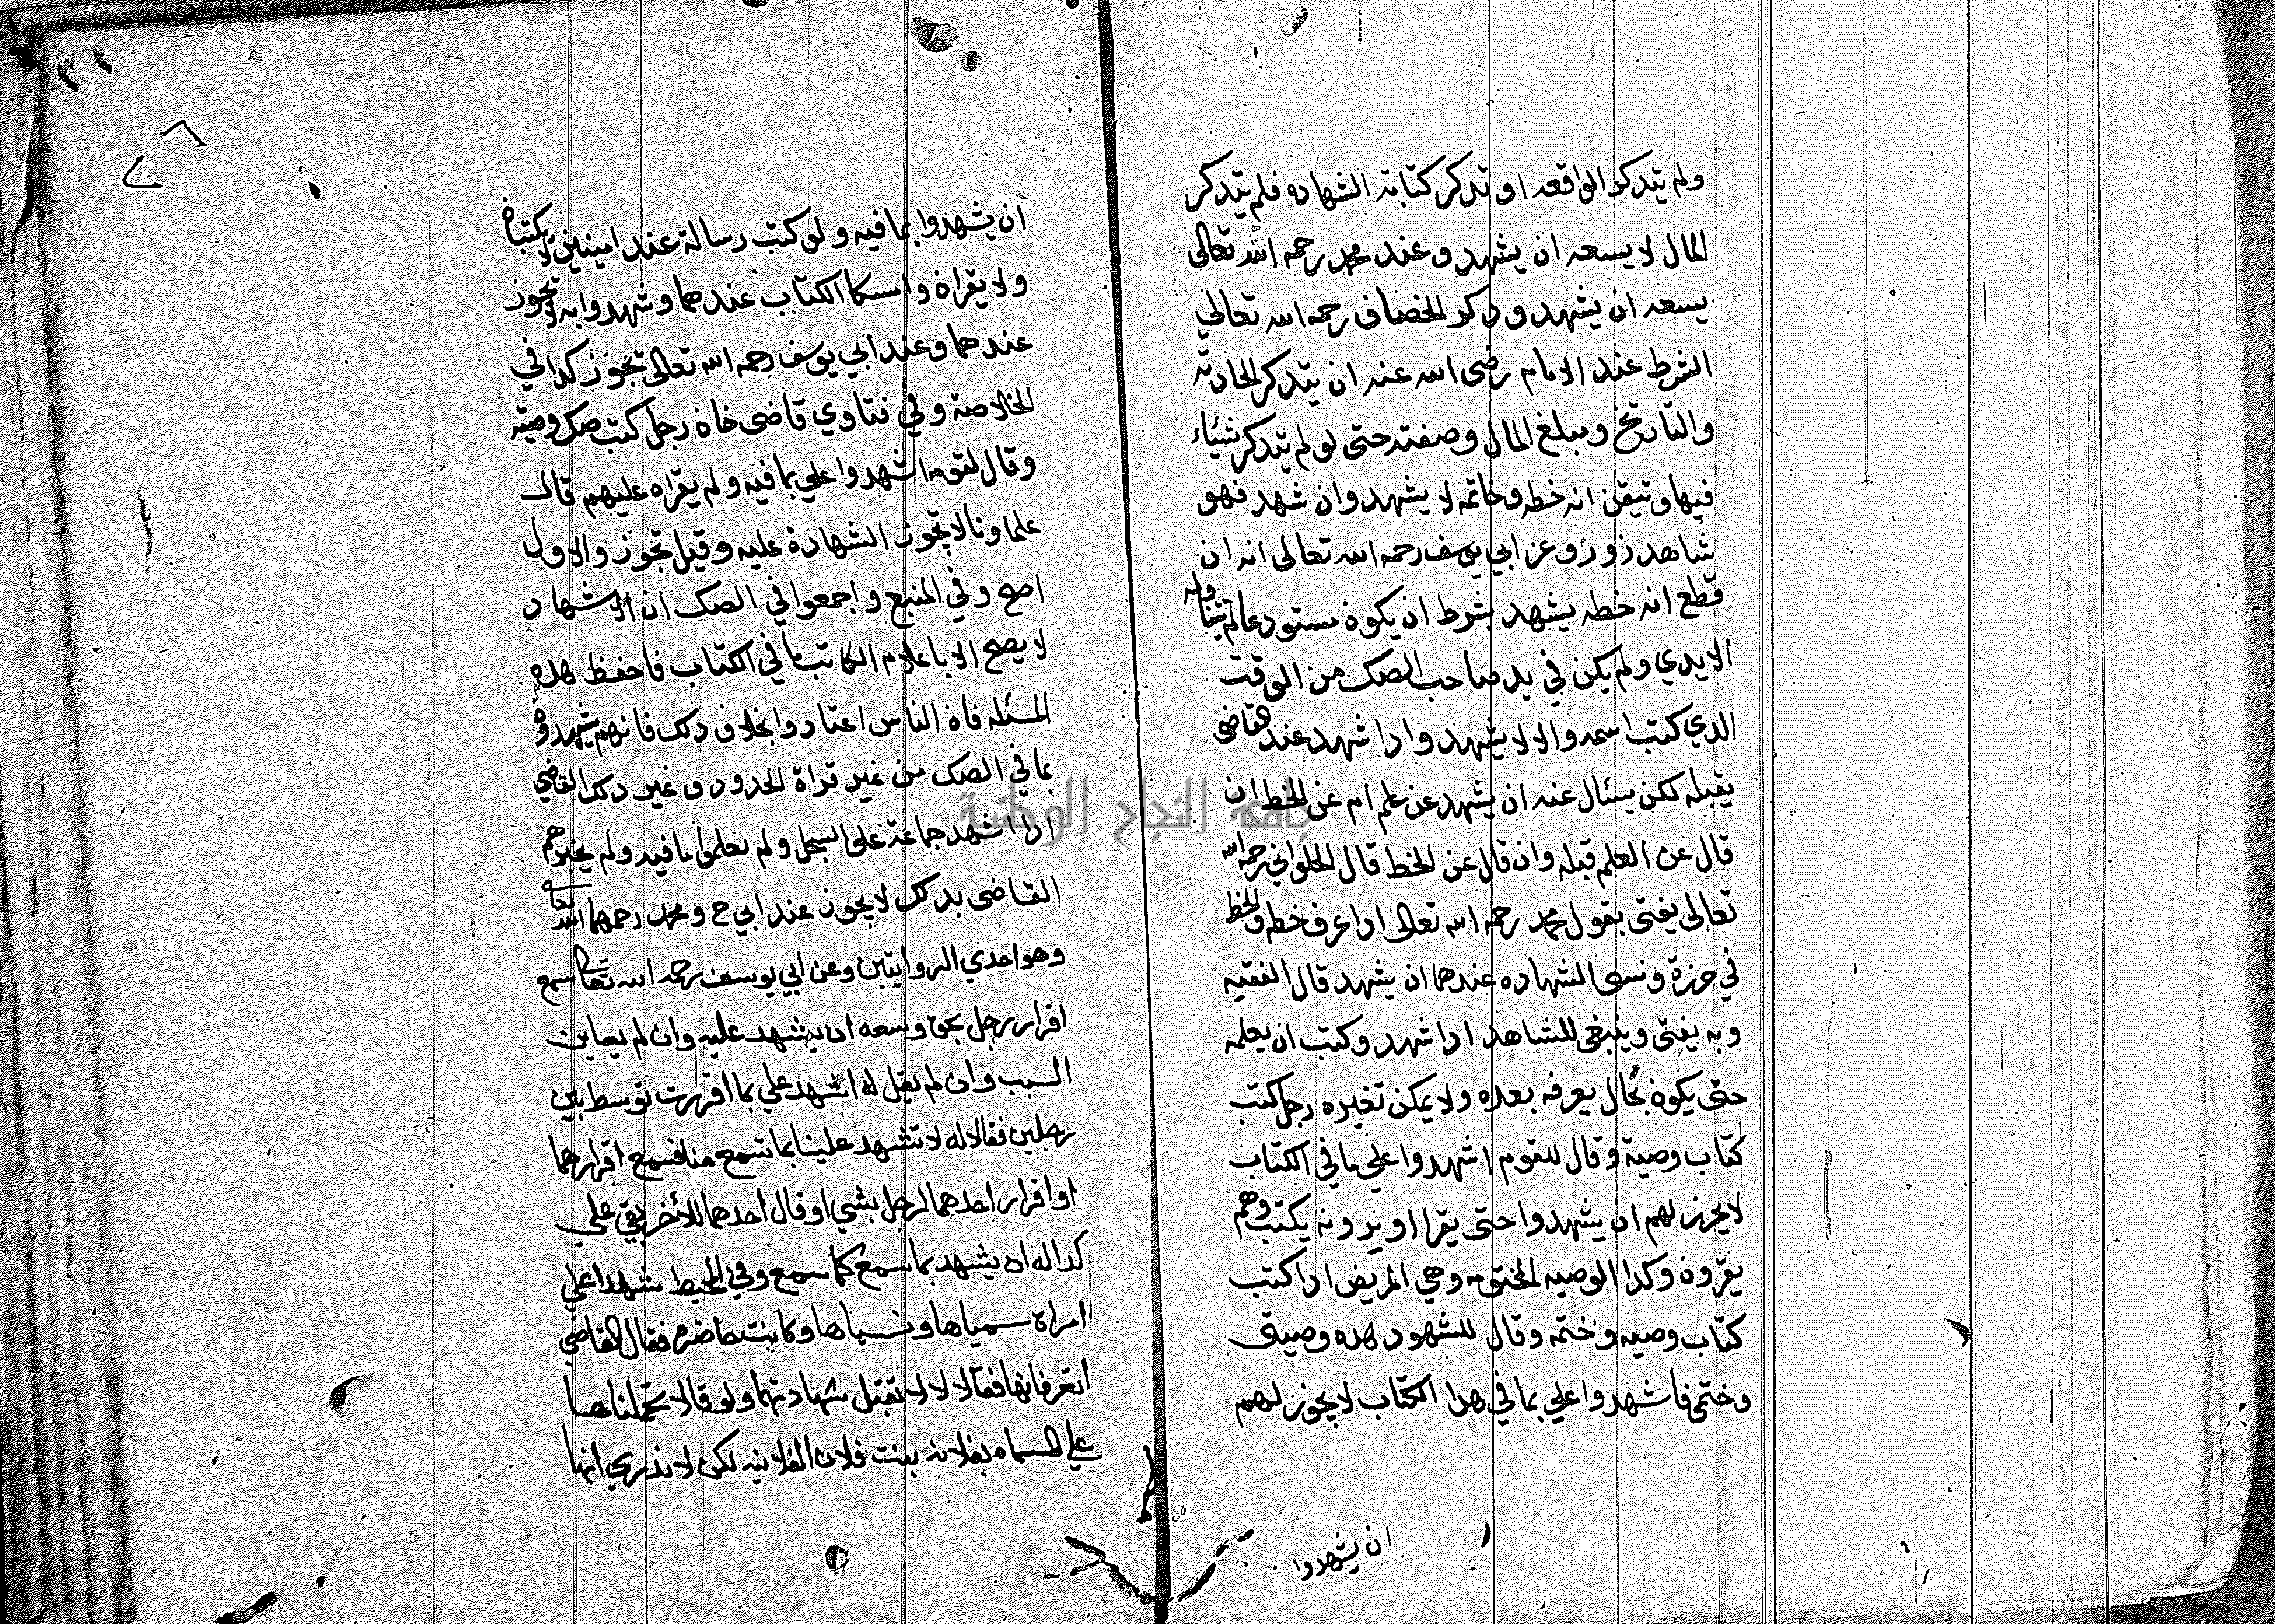 ولم يتدكر الواقعه او تدكر كتابة الشهاده فلم يتدكر
المال لا يسعه ان يشهد وعند محمد رحمه الله تعالى
يسعه ان يشهد ودكر الخصاف رحمه الله تعالي
الشرط عند الامام رضى الله عنه ان يتدكر الحادثة
والتاريخ ومبلغ المال وصفته حتى لو لم يتدكر شيئاء
فيها وتيقن انه خطه وخاتمه لا يشهد وان شهد فهو
شاهد زور وعن ابي يوسف رحمه الله تعالى انه ان
قطع انه خطه يشهد بشرط ان يكون مستودعا لم تتناوله
الايدي ولم يكن في يد صاحب الصك من الوقت
الدي كتب اسمه والا لا يشهد وادا شهد عند القاضى
يقبله لكن يسئال عنه ان يشهد عن علم ام عن الخط ان
قال عن العلم قبله وان قال عن الخط قال الحلواني رحمه الله
تعالى يفتى بقول محمد رحمه الله تعالى ادا عرف خطه والخط
في حرزة ونسى الشهاده عندهما ان يشهد قال الفقيه
وبه يفتى وينبغى للشاهد ادا شهد وكتب ان يعلمه
حتى يكون بحال يعرفه بعده ولا يمكن تغيره رجل كتب
كتاب وصية وقال للقوم اشهدوا علي ما في الكتاب
لا يجز لهم ان يشهدوا حتى يقرا او يرونه يكتب وهم
يقروه وكدا الوصيه المختومه وهي المريض ادا كتب
كتاب وصيه وختمه وقال للشهود هده وصيتى
وختمى فاشهدوا علي بما في هدا الكتاب لا يجوز لهم
ان يشهدوا
٣٢
أن يشهدوا بما فيه ولو كتب رسالة عند امينين لا يكتبان
ولا يقراه وامسكا الكتاب عندهما وشهدوا به لا تجوز
عندهما وعند ابي يوسف رحمه الله تعالى تجوز كدا في
الخلاصة وفي فتاوي قاضى خان رجل كتب صك وصية
وقال لقوم اشهدوا علي بما فيه ولم يقراه عليهم قال
علماونا لا تجوز الشهادة عليه وقيل تجوز والاول
اصح وفي المنبع واجمعوا في الصك ان الاشهاد
لا يصح الا باعلام الكاتب ما في الكتاب فاحفظ هده
المسئله فان الناس اعتادوا بخلاف دلك فانهم يشهدون
بما في الصك من غير قراة الحدود وغير دلك القاضي
ادا اشهد جماعة على السجل ولم يعلموا ما فيه ولم يخبرهم
القاضى بدلك لا يجوز عند ابي ح ومحمد رحمهما الله تعالى
وهو احدي الروايتين وعن ابي يوسف رحمه الله تعالى سمع
اقرار رجل بحق وسعه ان يشهد عليه وان لم يعاين
السبب وان لم يقل له اشهد علي بما اقررت توسط بين
رجلين فقالا له لا تشهد علينا بما تسمع منا فسمع اقرارهما
او اقرار احدهما لرجل بشي او قال احدهما للأخر بقي علي
كدا له ان يشهد بما سمع كما سمع وفي المحيط شهدا علي
امراة سمياها ونسباها وكانت حاضرة فقال القاضي
اتعرفانها فقالا لا لا تقبل شهادتهما ولو قالا تحملناها
علي المسماه بفلانه بنت فلان الفلانيه لكن لا ندري انها
جامعة النجاح الوطنية